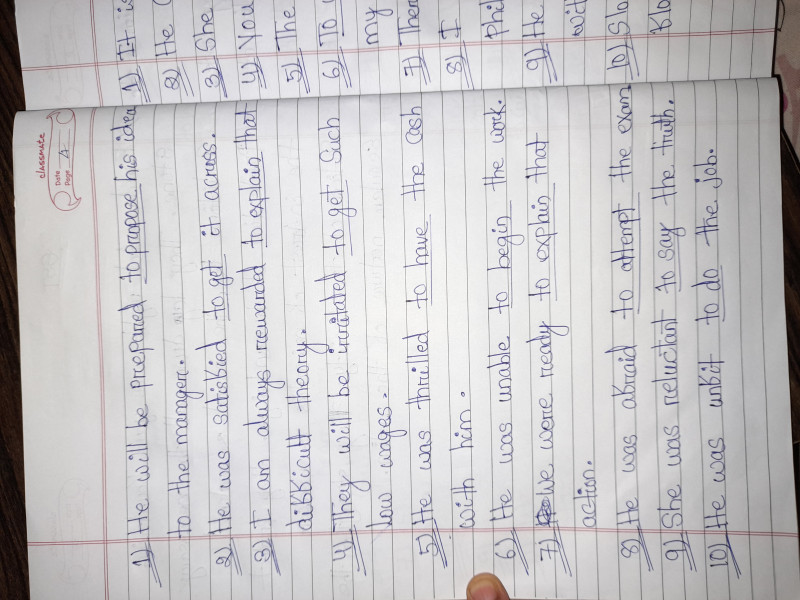 classmate
Date
Page A
1) He will be prepared to propose his idea
to the manager.
2) He was satisfied to get it across.
3) I am always rewarded to explain that
difficult theory.
4) They will be irritated to get such
low wages.
5) He was thrilled to have the cash
with him.
6) He was unable to begin the work.
7) We were ready to explain that
action.
8) He was afraid to attempt the exam
9) She was reluctant to say the truth.
10) He was unfit to do the job.
1) It is
2) He
3) She
4) You
5) The
6) To
my
7)
8) I
9) He
10)